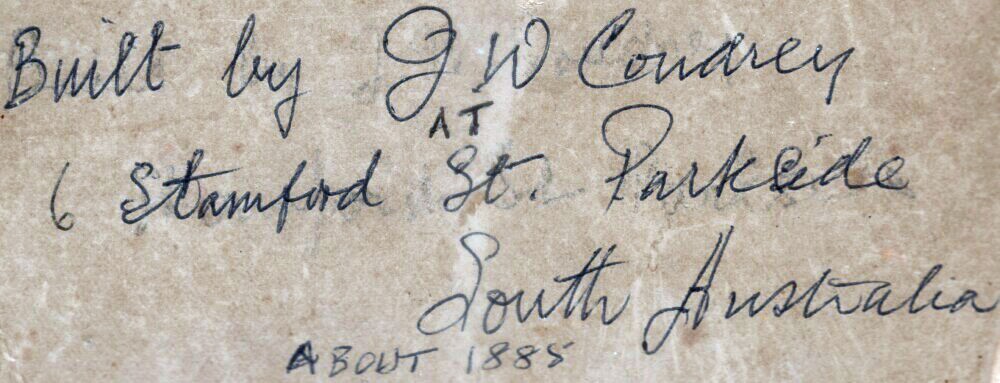 Built by G W Condrey
AT
6 Stamford St. Parkside
South Australia
ABOUT 1885